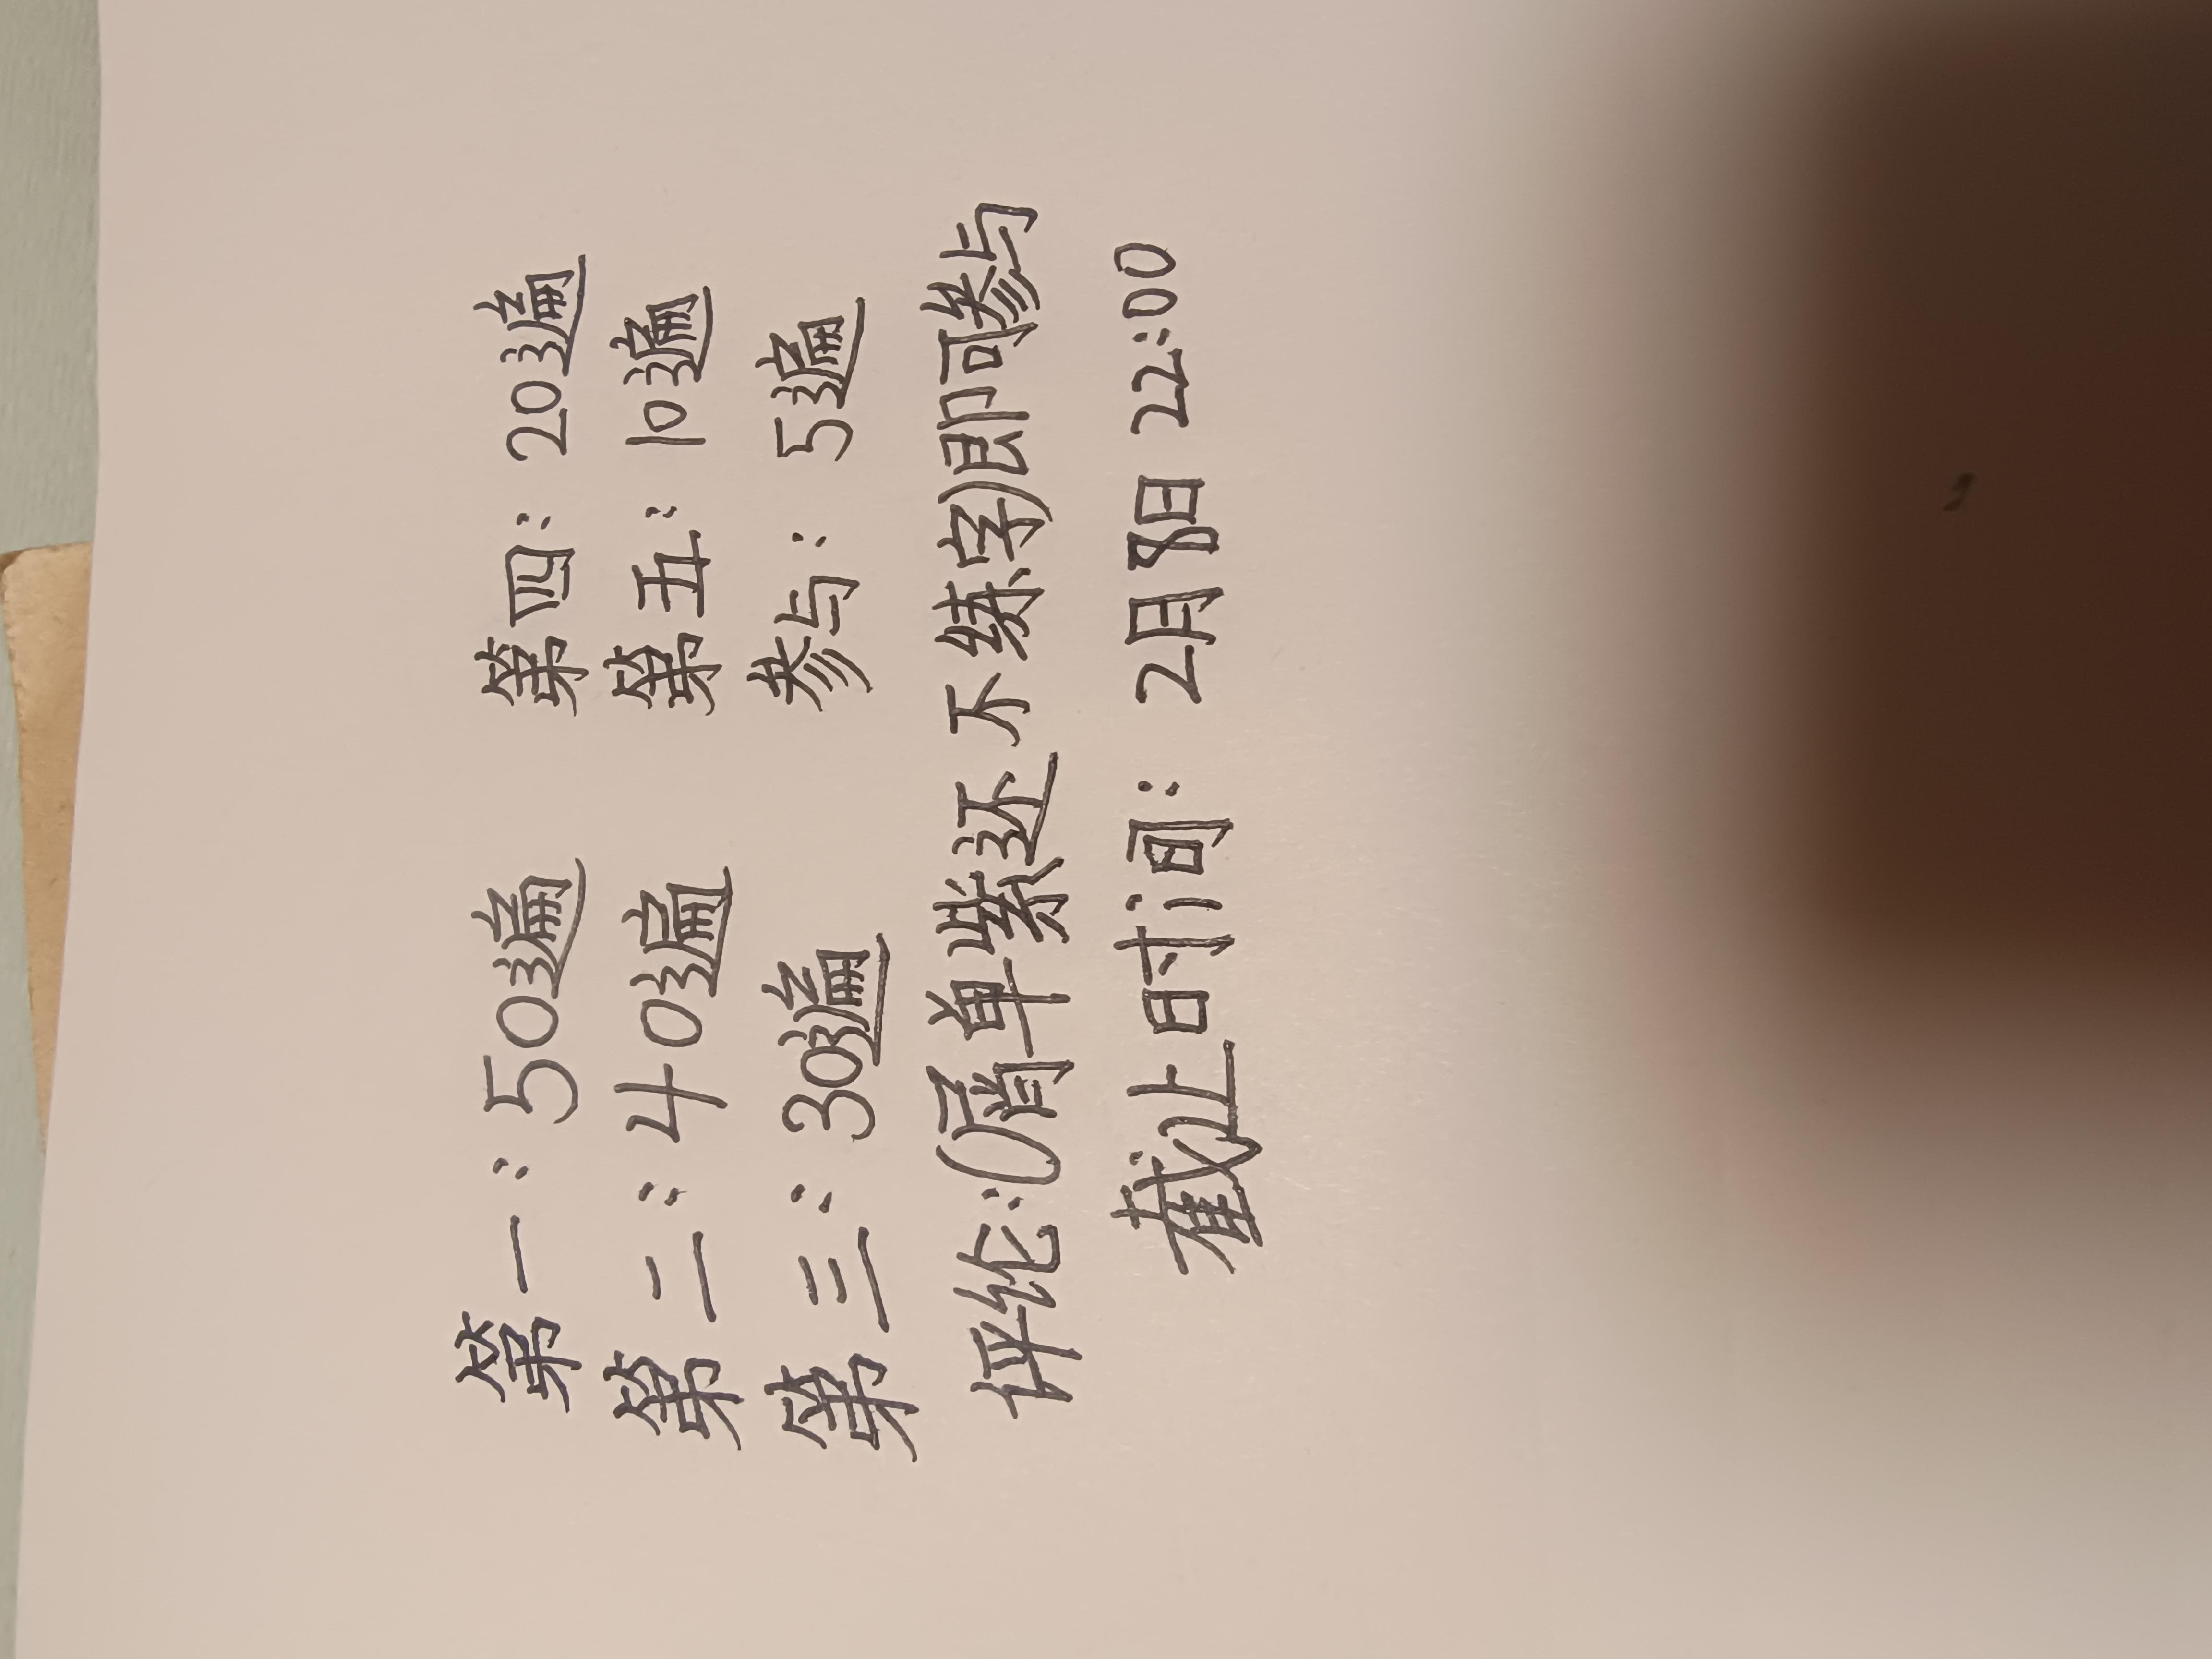 第一：50遍 第四：20遍
第二：40遍 第五：10遍
第三：30遍 参与：5遍
评论：(屑单紫还不练字)即可参与
截止时间：2月8日 22:00